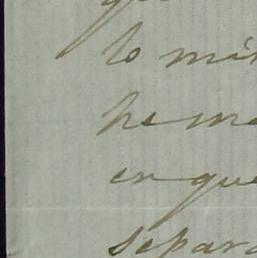 que
lo mis
he ma
en que
separa